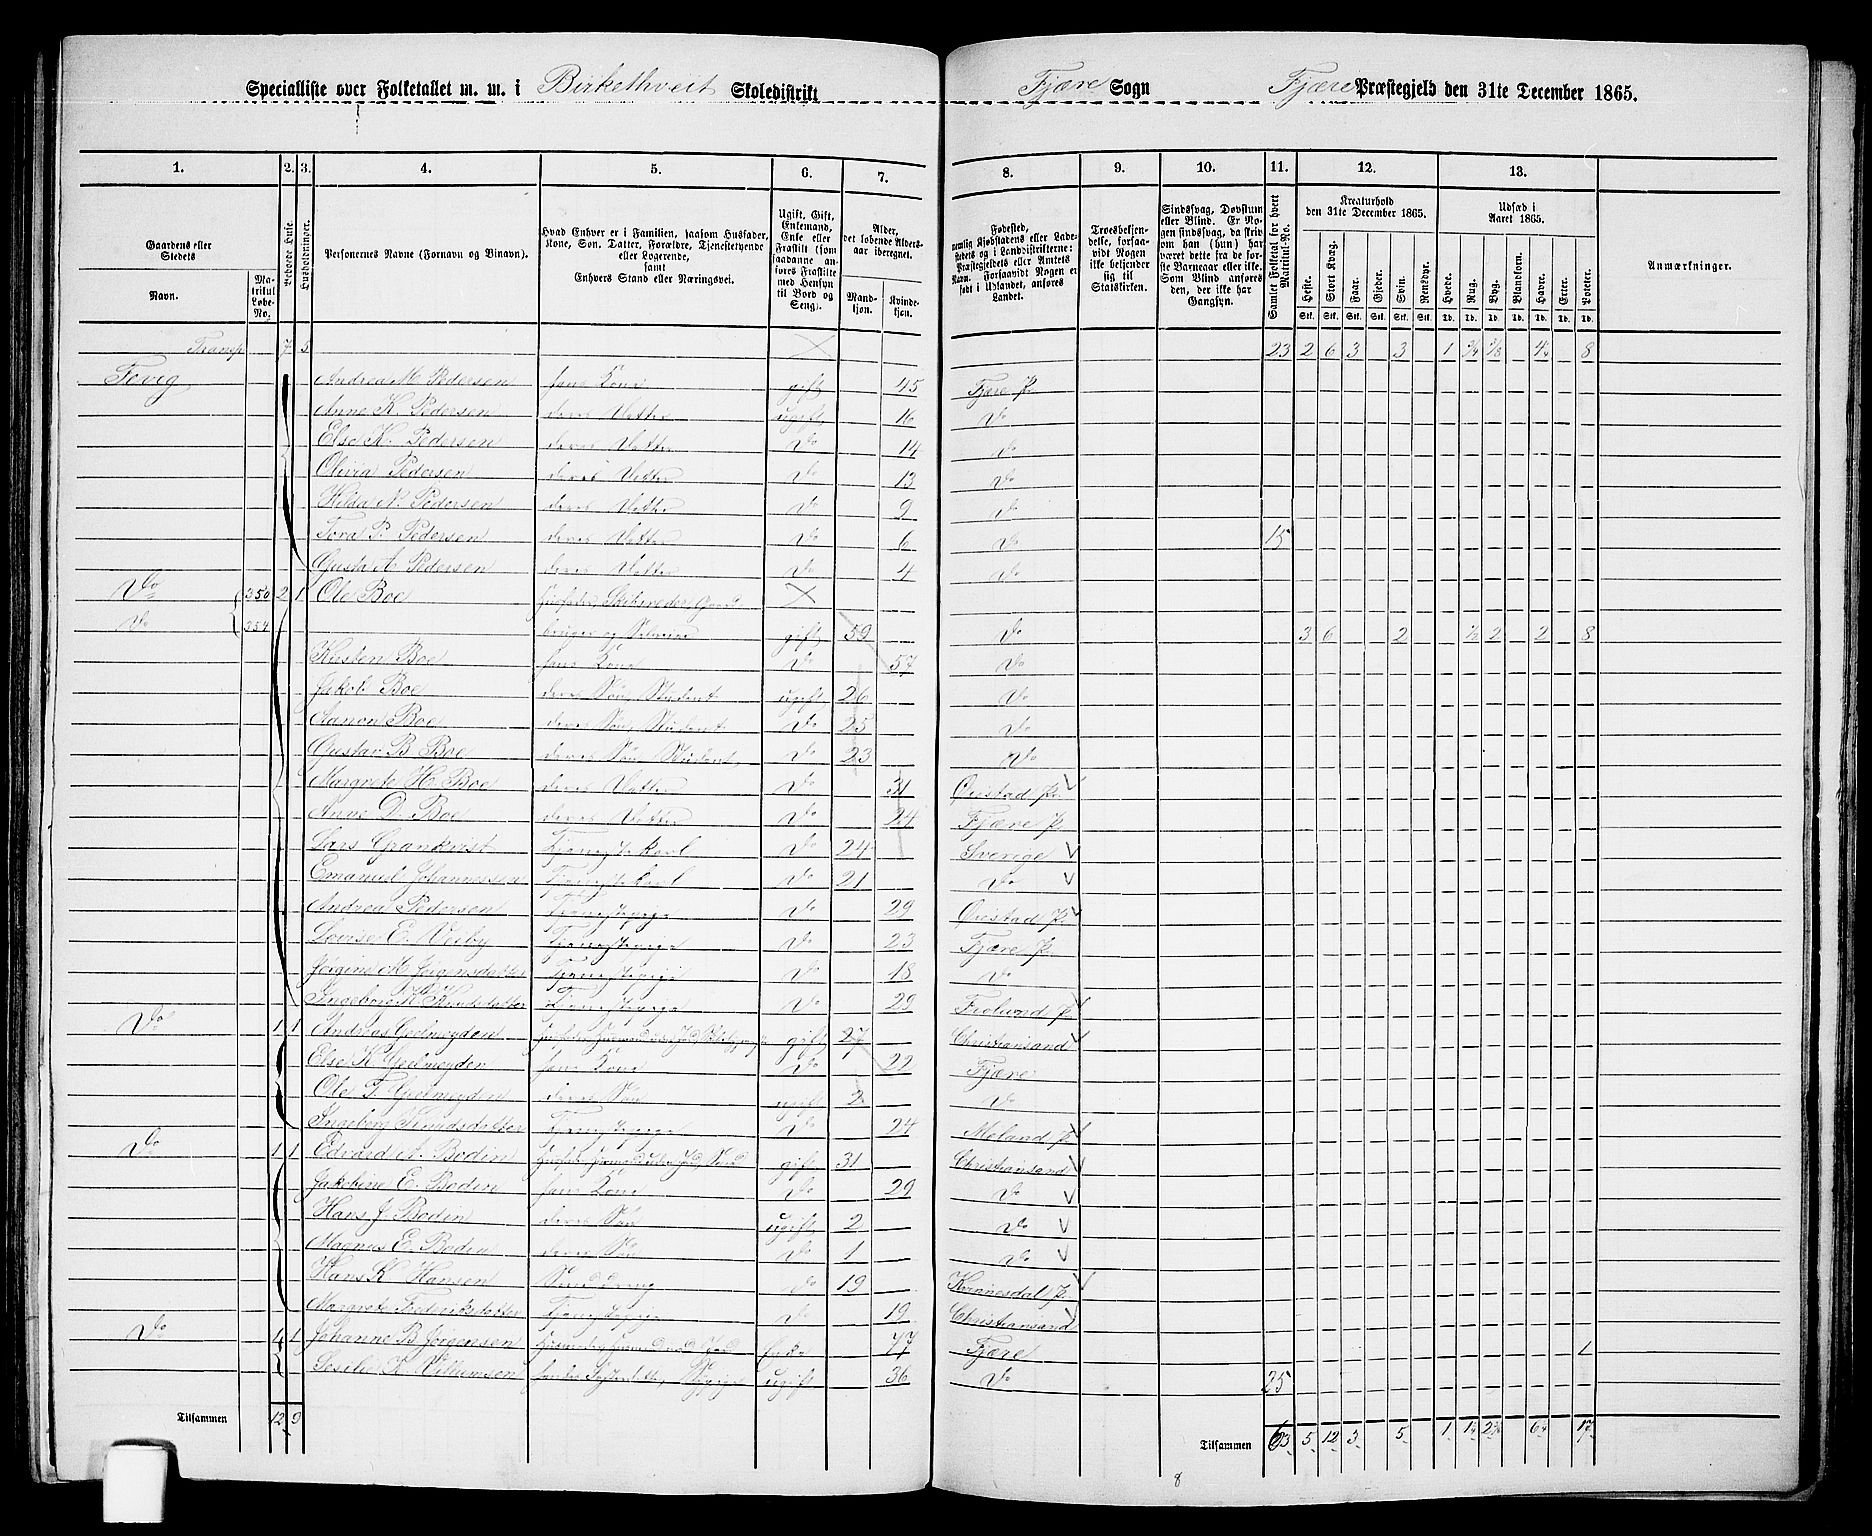 Specialliste over Folketallet m. m. i Birkethveit Skoledistrikt Fjære Sogn Fjære Præstegjeld den 31te December 1865.
1. 2. 3. 4. 5. 6. 7. 8. 9. 10. 11. 12. 13.
Gaardens eller Stedets
Navn.
Matrikul Løbe-No.
Beboede Huse.
Husholdninger.
Personernes Navne (Fornavn og Binavn).
Hvad Enhver er i Familien, saasom Husfader, Kone, Søn, Datter, Forældre, Tjenestetyende eller Logerende, samt Enhvers Stand eller Næringsvei.
Ugift, Gift, Enkemand, Enke eller Fraskilt (som saadanne anføres Fraskilte med Hensyn til Bord og Seng).
Alder, det løbende Aldersaar iberegnet.
Mandkjøn. Kvindekjøn.
Fødested,
nemlig Kjøbstadens eller Ladestedets og i Landdistrikterne: Præstegjeldets eller Amtets Navn. Forsaavidt Nogen er født i Udlandet, anføres Landet.
Troesbekjendelse, forsaavidt Nogen ikke bekjender sig til Statskirken.
Sindssvag, Døvstum eller Blind. Er Nogen sindssvag, da skrives om han (hun) har været dette fra de første Barneaar eller ikke. Som Blind anføres den, der ikke har Gangsyn.
Samlet Folketal for hvert Matrikul-No.
Kreaturhold den 31te December 1865.
Heste. Stort Kvæg. Faar. Gjeder. Svin. Rensdyr.
Udsæd i Aaret 1865.
Hvede. Rug. Byg. Blandkorn. Havre. Erter. Poteter.
Anmærkninger.
Transp 7 5 23 2 6 3 3 1 3/4 7/8 4 1/4 8
Fevig Andrea M. Pedersen hans Kone gift 45 Fjære P.
Anne K. Pedersen deres Datter ugift 16 Do
Else K. Pedersen deres Datter Do 14 Do
Olivia Pedersen deres Datter Do 13 Do
Hilda N. Pedersen deres Datter Do 9 Do
Tora P. Pedersen deres Datter Do 6 Do 15
Gusta A Pedersen deres Datter Do 4 Do
Do 350 2 1 Ole Boe Husfader, Skibsreder Gaard
Do 354 bruger og Selveier gift 59 Do 3 6 2 1/2 2 2 8
Kirsten Boe hans Kone Do 57 Do
Jakob Boe deres Søn Student ugift 26 Do
Aanon Boe deres Søn Student Do 25 Do
Gustav B. Boe deres Søn Student Do 23 Do
Margrete H. Boe deres Datter Do 31 Øiestad P.
Anne D. Boe deres Datter Do 24 Fjære P.
Lars Grankvist Tjenestekarl Do 24 Sverige
Emanuel Johannessen Tjenestekarl Do 21 Do
Andrea Pedersen Tjenestepige Do 29 Øiestad P.
Lovise E. Visby Tjenestepige Do 23 Fjære P.
Jørgine M. Jørgensdatter Tjenestepige Do 18 Do
Ingeborg Knudsdatter Tjenestepige Do 29
Do 1 1 Andreas Gjelmeyden gift 27 Christiansand
Else K. Gjelmeyden hans Kone Do 22 Fjære
Ole T. Gjelmeyden deres Søn ugift 2 Do
Ingeborg Knudsdatter Tjenestepige Do 24 Moland P.
Do 1 1 Edvard A. Boden gift 31 Christiansand
Jakobine E. Boden hans Kone Do 29 Do
Hans J. Boden deres Søn ugift 2 Do
Magnus E. Boden deres Søn Do 1 Do
Hans K. Hansen Do 19 Kvinesdal P.
Margrete Frederiksdatter Tjenestepige Do 19 Christiansand
Do 4 1 Johanne B. Jørgensen Enke 77 Fjære 1
Sesilie K. Willumsen ugift 36 Do 25
Tilsammen 12 9
Tilsammen 63 5 12 3 5 1 17
8